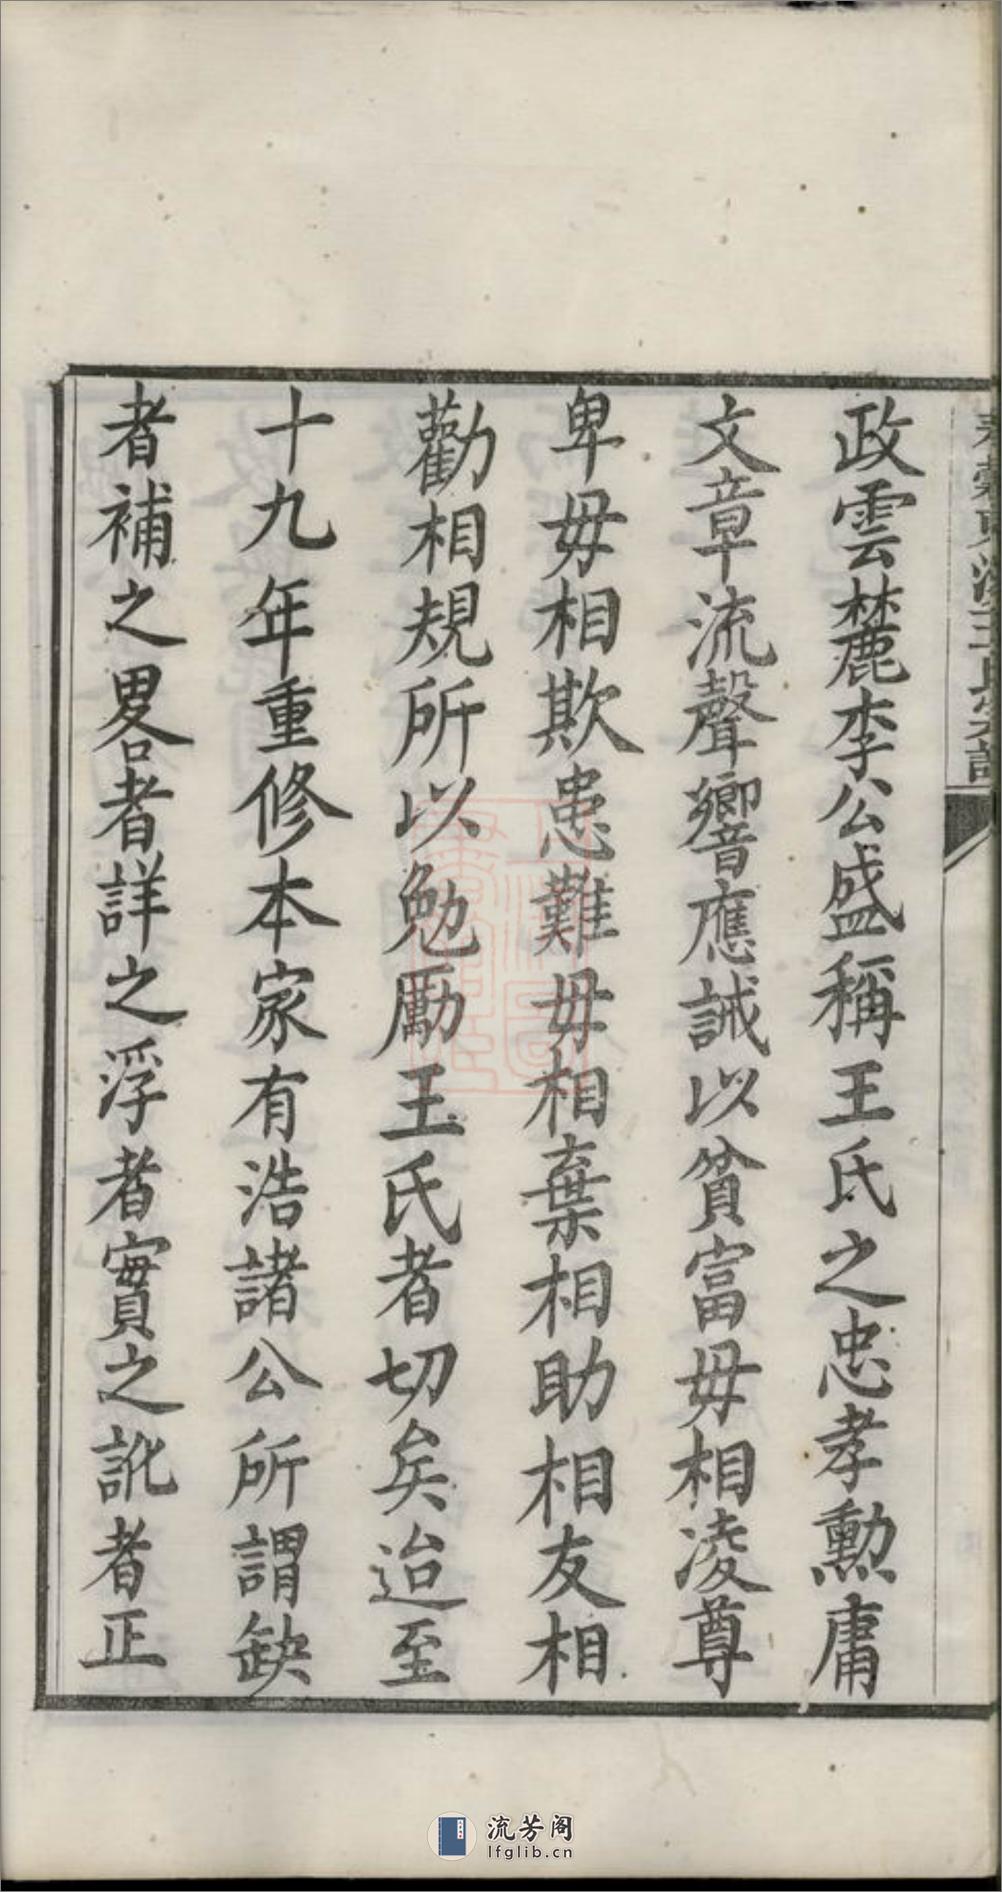 政雲麓李公盛稱王氏之忠孝勳庸
文章流聲響應誡以貧富毋相凌尊
卑毋相欺患難毋相棄相助相友相
勸相規所以勉勵王氏者切矣迨至
十九年重修本家有浩諸公所謂缺
者補之畧者詳之浮者實之訛者正
流芳阁
lfglib.cn